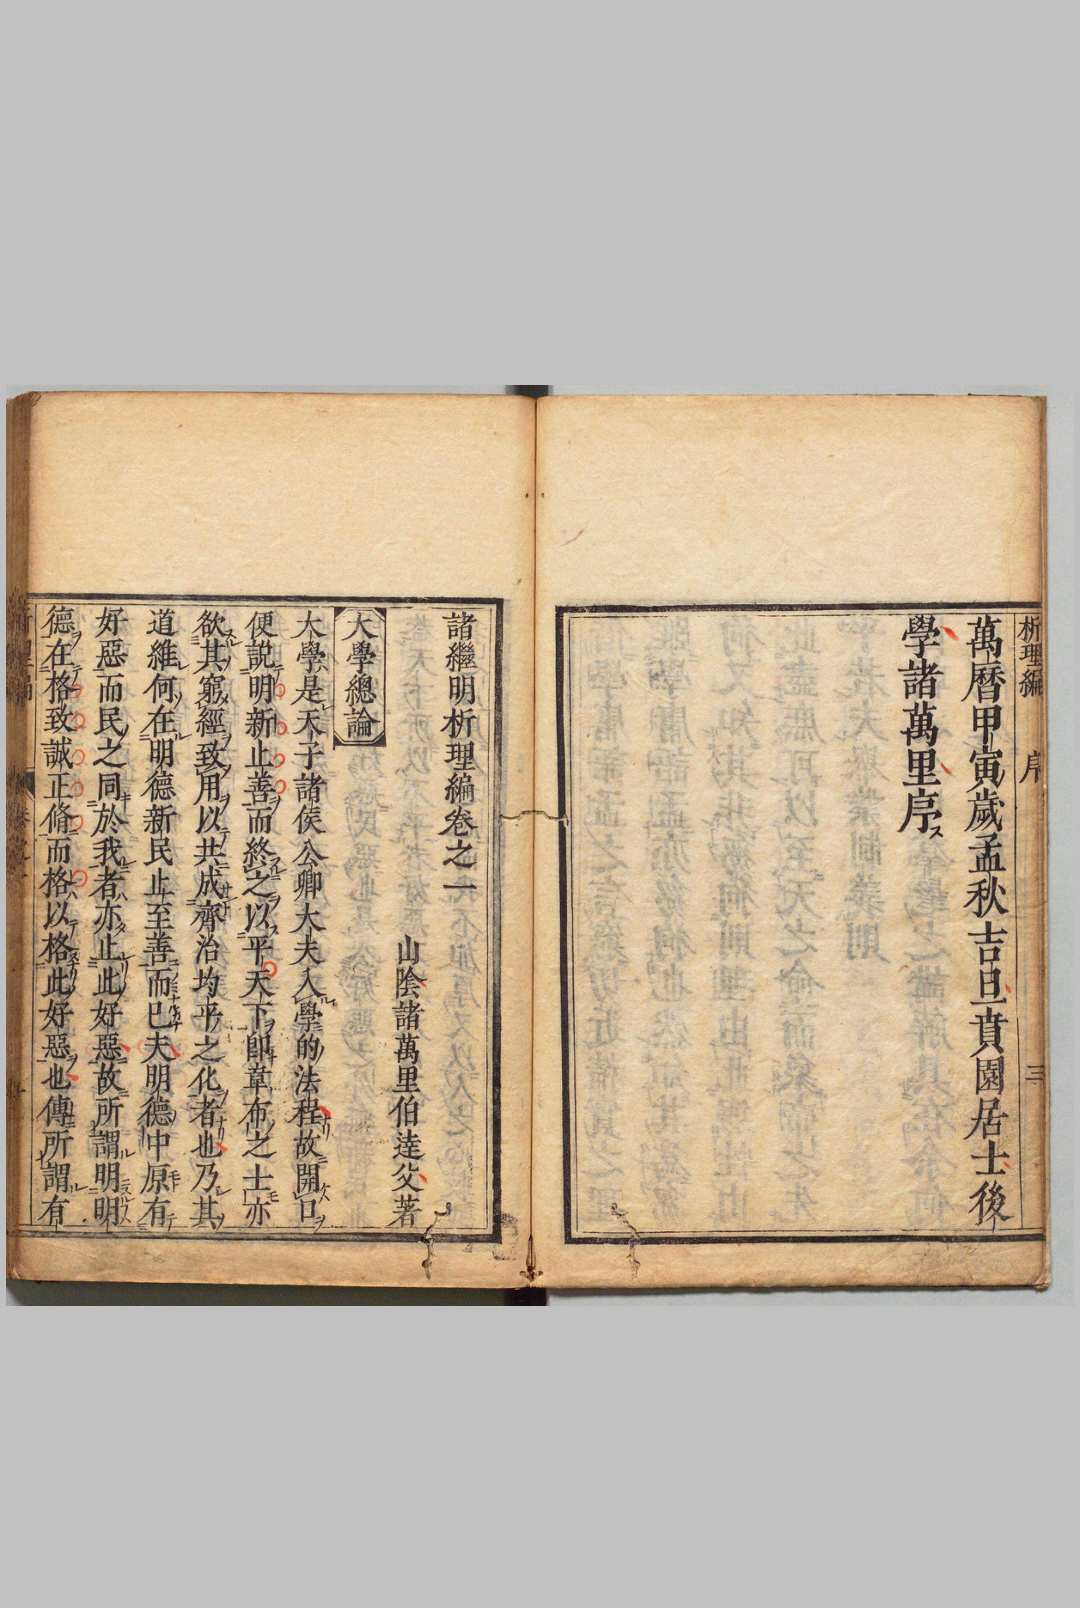 析理編 序 三
萬曆甲寅歲孟秋吉旦賁園居士後
學諸萬里序
諸繼明析理編卷之一
山陰諸萬里伯逹父著
大學總論
大學是天子諸侯公卿大夫入學的法程故開口
便説明新止善而終之以平天下即草布之士亦
欲其窮經致用以共成齊治均平之化者也乃其
道維何在明德新民止至善而已夫明德中原有
好惡而民之同於我者亦止此好惡故所謂明明
德在格致誠正脩而格以格此好惡也傳所謂有